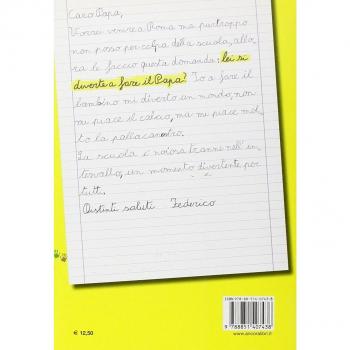 Caro Papa,
Vorrei venire a Roma ma purtroppo
non posso per colpa della scuola, allo-
ra le faccio questa domanda: lei si
diverte a fare il Papa? Io a fare il
bambino mi diverto un mondo, non
mi piace il calcio, ma mi piace mol-
to la pallacanestro.
La scuola è noiosa tranne nell'in-
tervallo, un momento divertente per
tutti.
Distinti saluti Federico
ISBN 978-88-514-0743-8
9 788851 407438
€ 12,50
www.ancoralibri.it